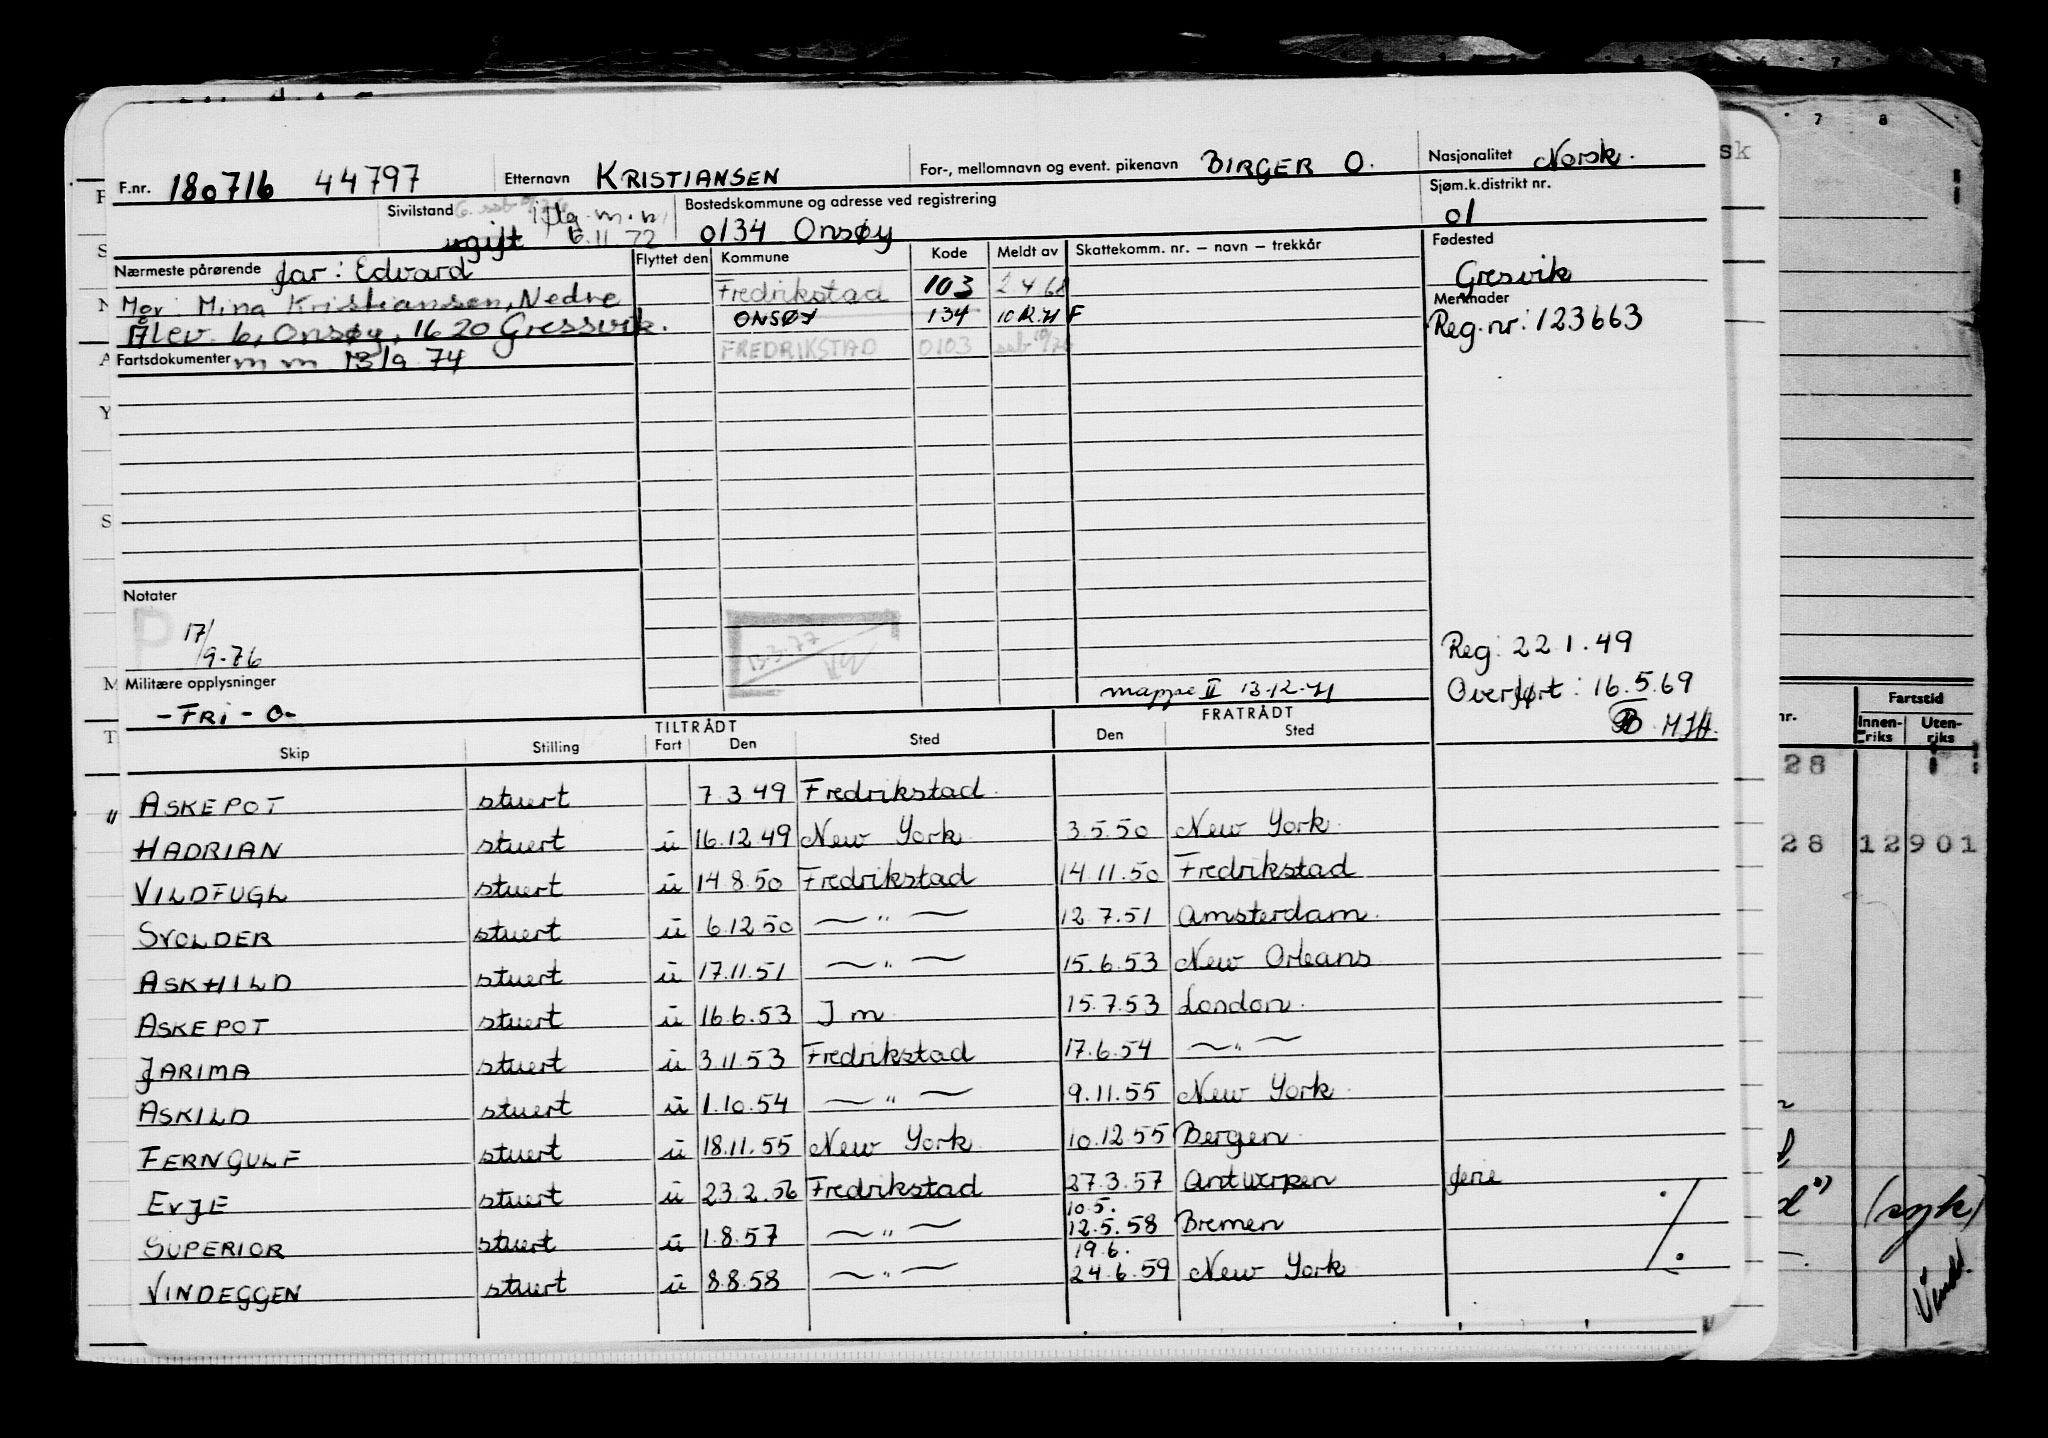 F.nr. 180716 44797 Etternavn KRISTIANSEN For-, mellomnavn og event. pikenavn BIRGER O. Nasjonalitet Norsk.
Sivilstand ugift 6.11.72 Bostedskommune og adresse ved registrering 0134 Onsøy Sjøm.k.distrikt nr. 01
Nærmeste pårørende far: Edvard
Mor: Mina Kristiansen, Nedre
Ålev. 6, Onsøy, 1620 Gressvik.
Fartsdokumenter m m 13/9 74
Flyttet den Kommune Kode Meldt av Skattekomm. nr. – navn – trekkår
Fredrikstad 103 2.4 68
ONSØY 134 10.12.71 F
FREDRIKSTAD 0103
Fødested
Gresvik
Merknader
Reg.nr: 123663
Notater
P 17/9-76
13-3-77
Militære opplysninger
- FRI - O-
mappe II 13-12-71
Reg: 22 1.49
Overført: 16.5.69
MJH.
TILTRÅDT FRATRÅDT
Skip Stilling Fart Den Sted Den Sted
ASKEPOT stuert 7.3.49 Fredrikstad
HADRIAN stuert u 16.12.49 New York 3.5.50 New York
VILDFUGL stuert u 14.8.50 Fredrikstad 14.11.50 Fredrikstad
SVOLDER stuert u 6.12 50 — " — 12.7.51 Amsterdam
ASKHILD stuert u 17.11.51 — " — 15.6.53 New Orleans
ASKEPOT stuert u 16.6.53 J m 15.7.53 London
JARIMA stuert u 3.11.53 Fredrikstad 17.6.54 — " —
ASKILD stuert u 1.10.54 — " — 9.11.55 New York
FERNGULF stuert u 18.11.55 New York 10.12.55 Bergen
EVJE stuert u 23.2.56 Fredrikstad 27.3.57 Antwerpen ferie
10.5.
SUPERIOR stuert u 1.8.57 — " — 12.5.58 Bremen
19.6.
VINDEGGEN stuert u 8.8.58 — " — 24.6.59 New York
7 8
sk
nr. Fartstid
Innenriks Utenriks
28
28 12901
(syk)